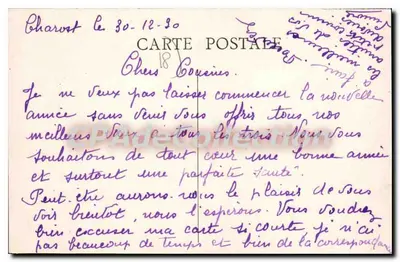 Charost le 30-12-30
CARTE POSTALE
(18)
Chers Cousins.
Je ne veux pas laisser commencer la nouvelle
année sans venir vous offrir tous nos
meilleurs vœux à tous les trois. Nous vous
souhaitons de tout cœur une bonne année
et surtout une parfaite santé.
Peut-être aurons-nous le plaisir de vous
voir bientôt, nous l'espérons. Vous voudrez
bien excuser ma carte si courte, je n'ai
pas beaucoup de temps et bien de la correspondance
à faire.
les meilleures
amitiés de vos